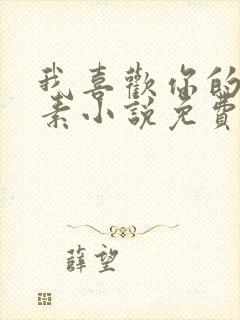 我喜歡你的
素小說免費
薛望